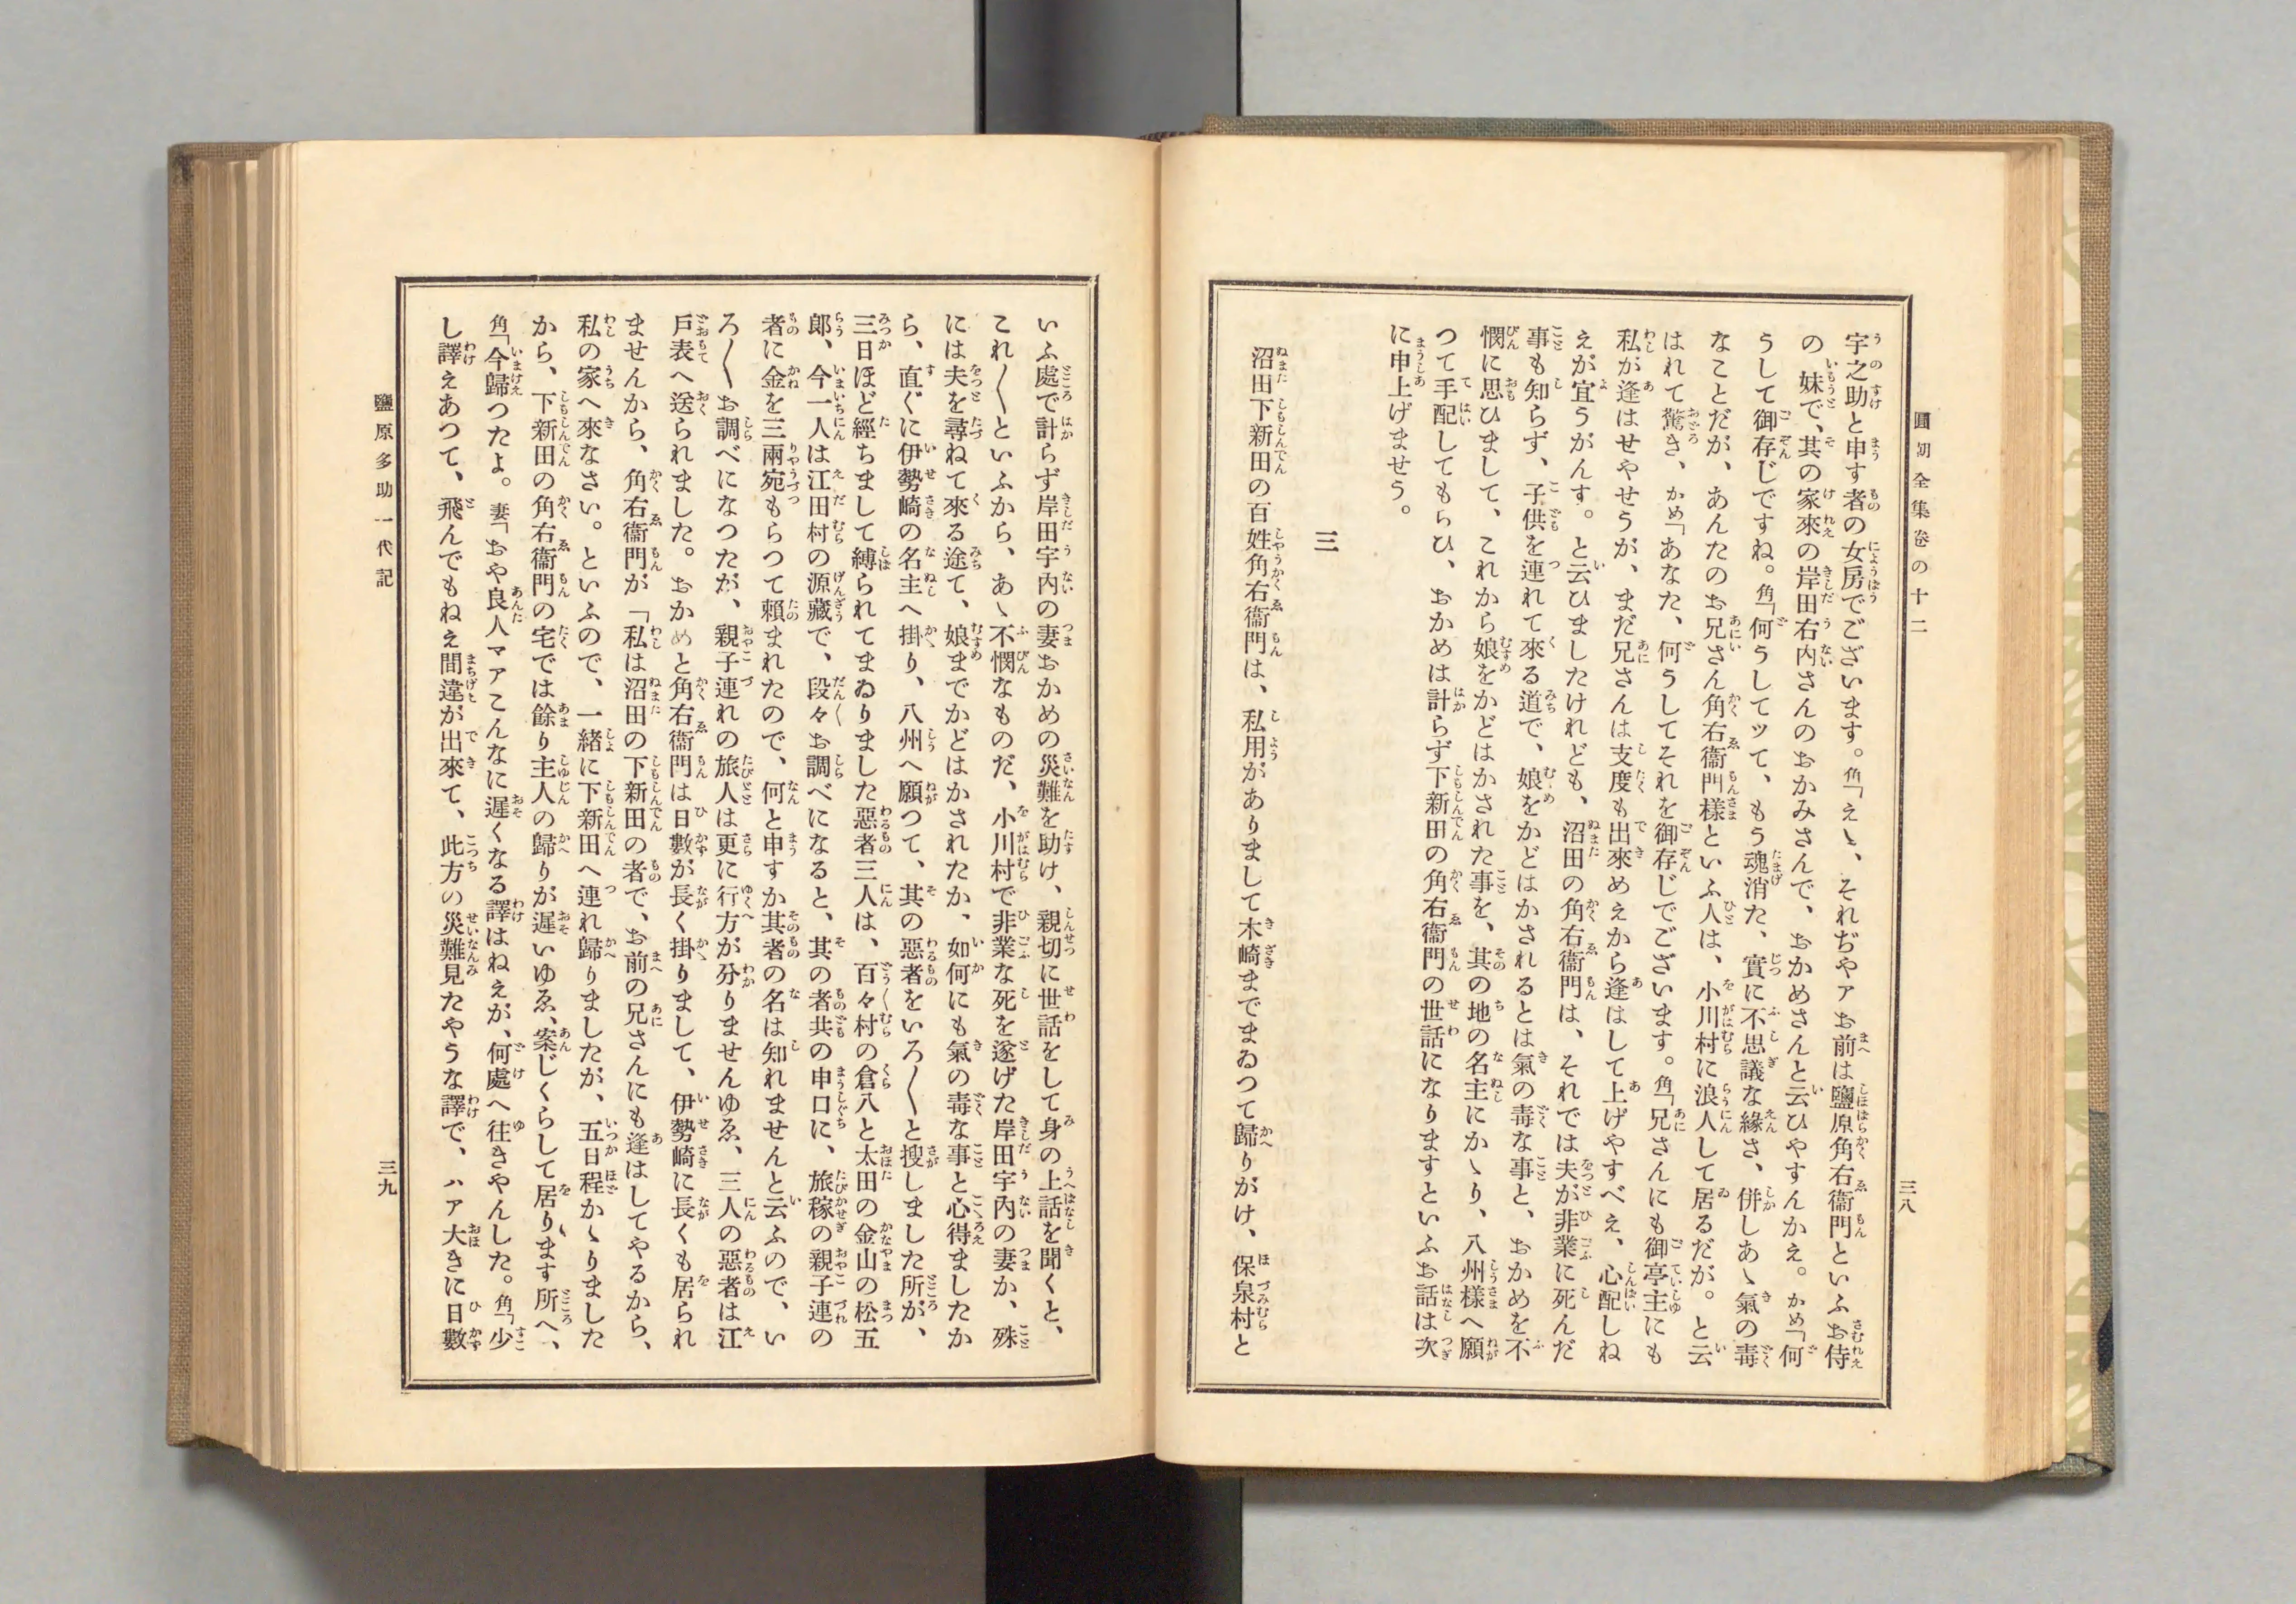 圓朝全集卷の十二
三八
宇之助と申す者の女房でございます。角「えゝ、それぢやアお前は鹽原角右衞門といふお侍
の妹で、其の家來の岸田右内さんのおかみさんで、おかめさんと云ひやすんかえ。かめ「何
うして御存じですね。角「何うしてッて、もう魂消た、實に不思議な緣さ、併しあゝ氣の毒
なことだが、あんたのお兄さん角右衞門樣といふ人は、小川村に浪人して居るだが。と云
はれて驚き、かめ「あなた、何うしてそれを御存じでございます。角「兄さんにも御亭主にも
私が逢はせやせうが、まだ兄さんは支度も出來めえから逢はして上げやすべえ、心配しね
えが宜うがんす。と云ひましたけれども、沼田の角右衞門は、それでは夫が非業に死んだ
事も知らず、子供を連れて來る道で、娘をかどはかされるとは氣の毒な事と、おかめを不
憫に思ひまして、これから娘をかどはかされた事を、其の地の名主にかゝり、八州樣へ願
つて手配してもらひ、おかめは計らず下新田の角右衞門の世話になりますといふお話は次
に申上げませう。
三
沼田下新田の百姓角右衞門は、私用がありまして木崎までまゐつて歸りがけ、保泉村と
いふ處で計らず岸田宇内の妻おかめの災難を助け、親切に世話をして身の上話を聞くと、
これ〳〵といふから、あゝ不憫なものだ、小川村で非業な死を遂げた岸田宇内の妻か、殊
には夫を尋ねて來る途で、娘までかどはかされたか、如何にも氣の毒な事と心得ましたか
ら、直ぐに伊勢崎の名主へ掛り、八州へ願つて、其の惡者をいろ〳〵と搜しました所が、
三日ほど經ちまして縛られてまゐりました惡者三人は、百々村の倉八と太田の金山の松五
郎、今一人は江田村の源藏で、段々お調べになると、其の者共の申口に、旅稼の親子連の
者に金を三兩宛もらつて賴まれたので、何と申すか其者の名は知れませんと云ふので、い
ろ〳〵お調べになつたが、親子連れの旅人は更に行方が分りませんゆゑ、三人の惡者は江
戸表へ送られました。おかめと角右衞門は日數が長く掛りまして、伊勢崎に長くも居られ
ませんから、角右衞門が「私は沼田の下新田の者で、お前の兄さんにも逢はしてやるから、
私の家へ來なさい。といふので、一緒に下新田へ連れ歸りましたが、五日程かゝりました
から、下新田の角右衞門の宅では餘り主人の歸りが遲いゆゑ、案じくらして居ります所へ、
角「今歸つたよ。妻「おや良人マアこんなに遲くなる譯はねえが、何處へ往きやんした。角「少
し譯えあつて、飛んでもねえ間違が出來て、此方の災難見たやうな譯で、ハア大きに日數
鹽原多助一代記
三九